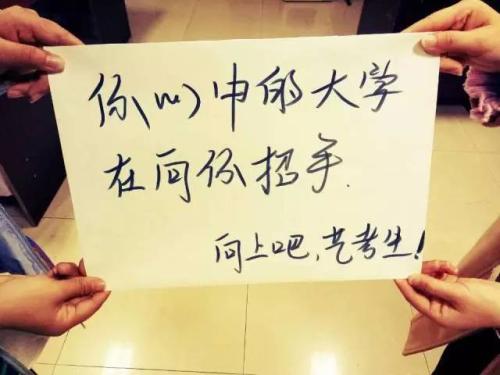 你(心)中的大学
在向你招手.
向上吧,艺考生!